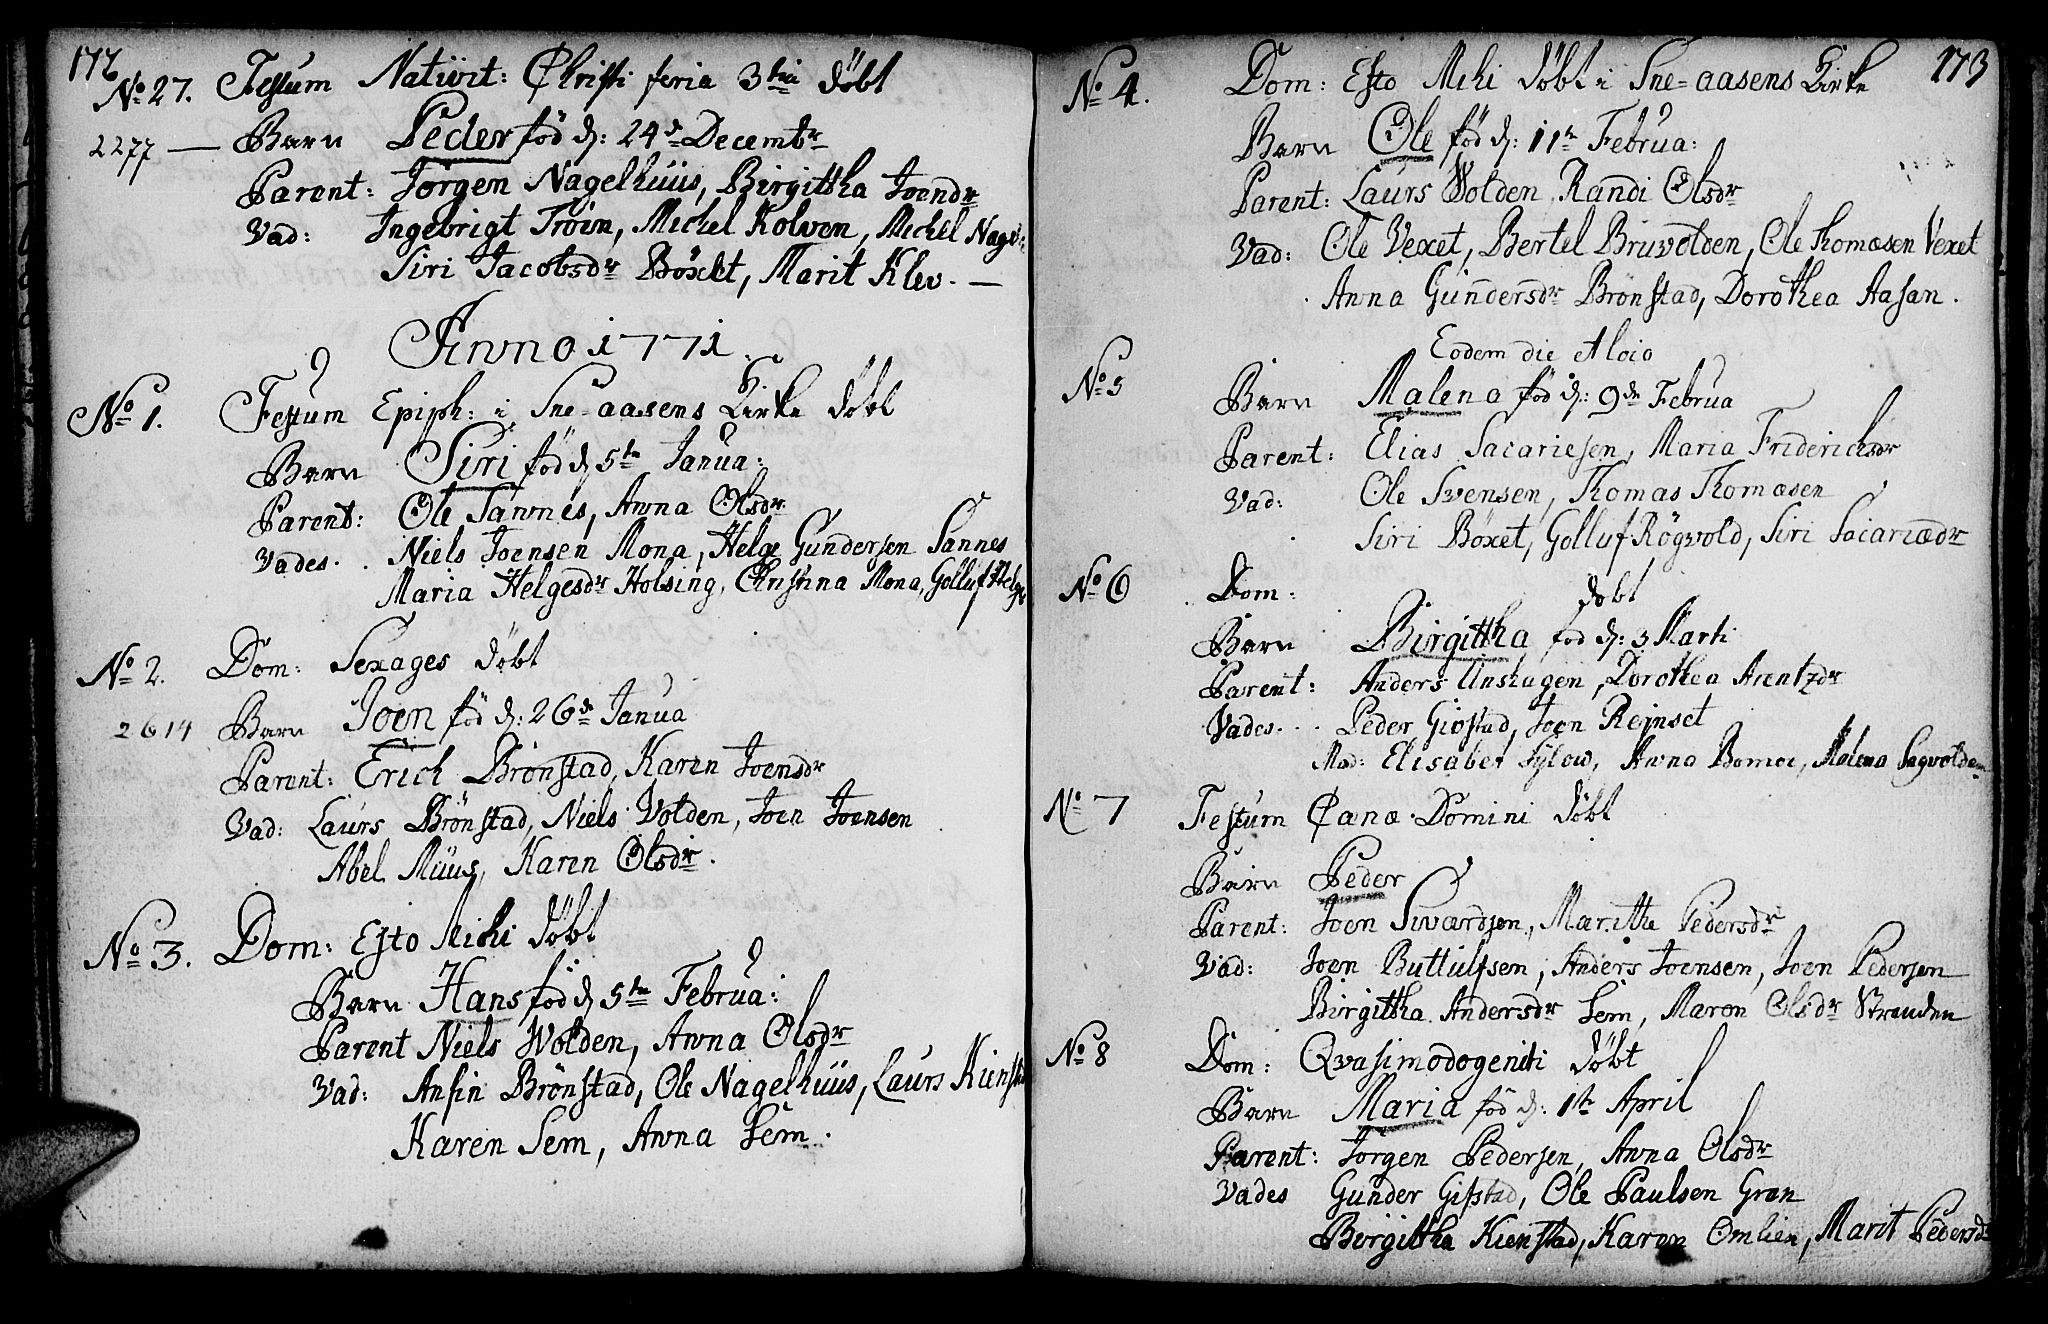 172
No 27. Festum Nativit: Christi feria 3tia døbt
2277 — Barn Peder fød d: 24de Decembr
Parent: Jörgen Nagelhuus, Birgittha Joensdr
Vad: Ingebrigt Tröen, Michel Kolven, Michel Nagel
Siri Jacobsdr Böxet, Marit Klev. —
Anno 1771.
No 1. Festum Epiph: i Sne-aasens Kirke døbt
Barn Siri fød d 5te Janua:
Parent: Ole Sannes, Anna Olsdr
Vades. . Niels Joensen Mona, Helge Gundersen Sannes
Maria Helgesdr Holsing, Christina Mona, Golluf Helge
No 2. Dom: Sexages døbt
2614 Barn Joen fød d: 26de Janua
Parent: Erich Brönstad, Karen Joensdr
Vad: Laurs Brönstad, Niels Volden, Joen Joensen
Abel Müus, Karen Olsdr.
No 3. Dom: Esto Michi døbt
Barn Hans fød d 5te Februa:
Parent Niels Wolden, Anna Olsdr
Vad: Ansin Brönstad, Ole Nagelhuus, Laurs Kienst
Karen Sem, Anna Sem.
173
No 4. Dom: Esto Mihi døbt i Sne-aasens Kirke
Barn Ole fød d: 11te Februa:
Parent: Laurs Wolden Randi Olsdr
Vad: Ole Vexet, Bertel Bruvolden, Ole Thomæsen Vexet
Anna Gundersdr Brönstad, Dorothea Aasan.
Eodem die et loco
No 5 Barn Malena fød d: 9de Februa
Parent: Elias Sacariesen, Maria Friderichsdr
Vad: Ole Svensen, Thomas Thomæsen
Siri Böxet, Golluf Rögvold, Siri Sacariædr
No 6 Dom: døbt
Barn Birgittha fød d: 3 Marti
Parent: Anders Unshagen, Dorothea Arentzdr
Vades. . . Peder Givstad, Joen Rejnset
Mad: Elisabet Sylow, Anna Bomoe, Malena Sagvolden
No 7 Festum Cænæ Domini døbt
Barn Peder
Parent: Joen Siwardsen, Maritha Pedersdr
Vad: Joen Buttulfsen, Anders Joensen, Joen Pedersen
Birgittha Andersdr Sem, Maren Olsdr Stranden
No 8 Dom: Qvasimodogeniti døbt
Barn Maria fød d: 1te April
Parent: Jörgen Pedersen, Anna Olsdr
Vades Gunder Gifstad, Ole Paulsen Gran
Birgittha Kienstad, Karen Omlien, Marit Pedersd